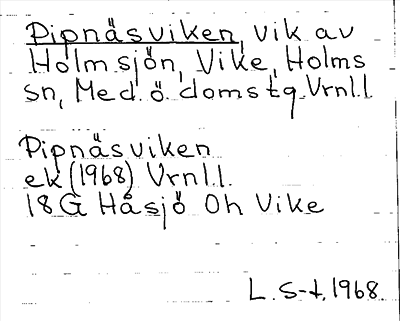 Pipnäsviken, vik av
Holmsjön, Vike, Holms
sn, Med. ö. domstg. Vrnl.l.
Pipnäsviken
ek (1968) Vrnl.l.
18G Håsjö Oh Vike
L. S-t, 1968